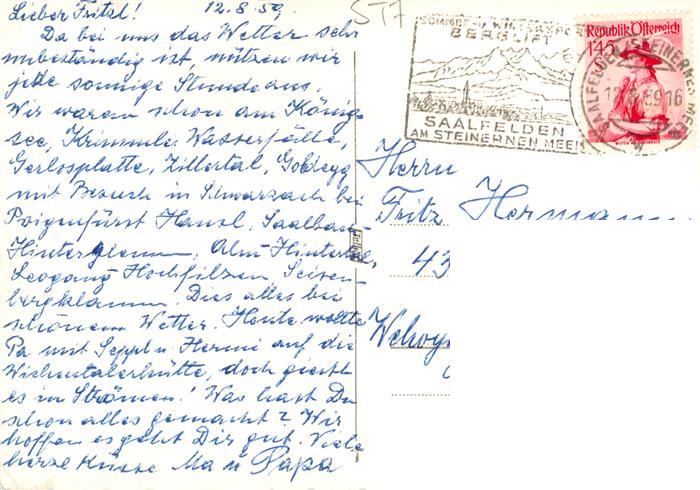 Lieber Fritzl! 12.8.59.
Da bei uns das Wetter sehr
unbeständig ist, nützen wir
jede sonnige Stunde aus.
Wir waren schon am König-
see, Krimmler Wasserfälle,
Gerlosplatte, Zillertal, Goldegg
mit Besuch in Schwarzach bei
Hansl. Saalbach-
Hinterglemm, Alm-Hintertal,
Leogang Hochfilzen, Seisen-
bergklamm. Dies alles bei
schönem Wetter. Heute wollte
Pa mit Seppl u. Hermi auf die
Wiechentalerhütte, doch giesst
es in Strömen! Was hast Du
schon alles gemacht? Wir
hoffen es geht Dir gut. Viele
herzl Küsse Ma u Papa
ST7
SOMMER- U. WINTERSPORT
BERGLIFT
SAALFELDEN
AM STEINERNEN MEER
Republik Österreich
1.45 S
SAALFELDEN AM STEINERNEN MEER
Herrn
Fritz Hermann
43